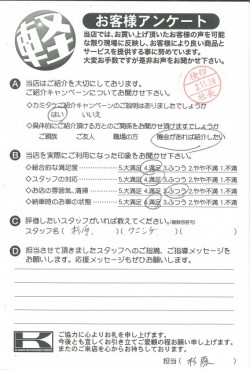 軽
お客様アンケート
当店では、お買い上げ頂いたお客様の声を可能
な限り現場に反映し、お客様により良い商品と
サービスを提供する事に努めています。
大変お手数ですが是非お声をお聞かせ下さい。
A 当店はご紹介を大切にしております。
ご紹介キャンペーンについてお聞かせ下さい。
◇カミタケご紹介キャンペーンのご説明はありましたでしょうか
はい いいえ
◇具体的にご紹介頂ける方とのご関係をお聞かせ頂けますでしょうか
ご親族 ご友人 職場の方 機会があれば紹介したい
B 当店を実際にご利用になった印象をお聞かせ下さい。
◇総合的な満足度 5.大満足 4.満足 3.ふつう 2.やや不満 1.不満
◇スタッフの対応 5.大満足 4.満足 3.ふつう 2.やや不満 1.不満
◇お店の雰囲気、清掃 5.大満足 4.満足 3.ふつう 2.やや不満 1.不満
◇納車時のお車の状態 5.大満足 4.満足 3.ふつう 2.やや不満 1.不満
C 評価したいスタッフがいれば教えてください。(複数回答可)
スタッフ名( 杉原 )( クニシゲ )
D 担当させて頂きましたスタッフへのご指摘、ご指導メッセージを
お願いします。応援メッセージもぜひお願いします。
K
ご協力に心よりお礼を申し上げます。
今後とも宜しくお引き立てご愛顧の程お願い申し上げます。
またのご来店を心からお待ちしております。
担当( 杉原 )